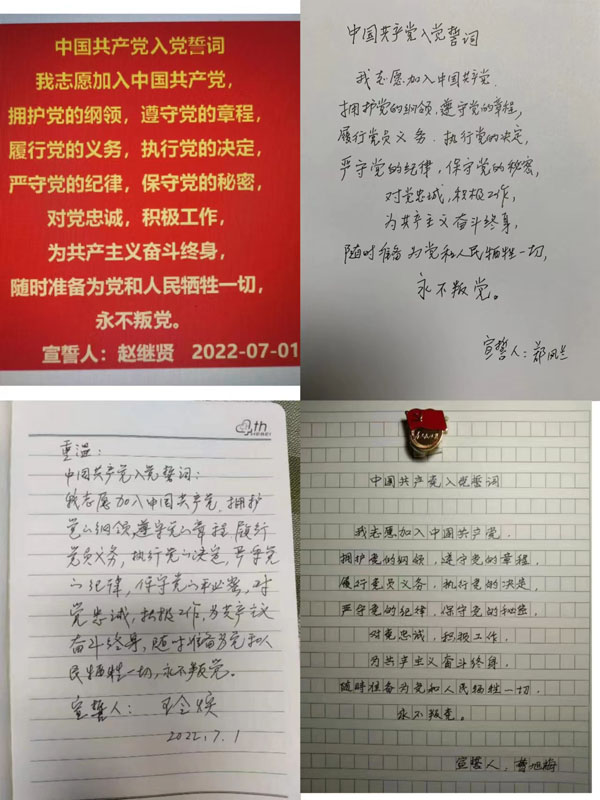 中国共产党入党誓词
我志愿加入中国共产党，
拥护党的纲领，遵守党的章程，
履行党的义务，执行党的决定，
严守党的纪律，保守党的秘密，
对党忠诚，积极工作，
为共产主义奋斗终身，
随时准备为党和人民牺牲一切，
永不叛党。
宣誓人：赵继贤 2022-07-01
中国共产党入党誓词
我志愿加入中国共产党.
拥护党的纲领.遵守党的章程，
履行党员义务.执行党的决定，
严守党的纪律，保守党的秘密，
对党忠诚，积极工作，
为共产主义奋斗终身，
随时准备为党和人民牺牲一切，
永不叛党。
宣誓人：郑凤兰
重温：
中国共产党入党誓词：
我志愿加入中国共产党，拥护
党的纲领，遵守党的章程，履行
党员义务，执行党的决定，严守党
的纪律，保守党的秘密，对
党忠诚，积极工作，为共产主义
奋斗终身，随时准备为党和人
民牺牲一切，永不叛党。
宣誓人：
2022.7.1
中国共产党入党誓词
我志愿加入中国共产党，
拥护党的纲领，遵守党的章程，
履行党员义务，执行党的决定，
严守党的纪律，保守党的秘密，
对党忠诚，积极工作，
为共产主义奋斗终身，
随时准备为党和人民牺牲一切，
永不叛党。
宣誓人：曹旭梅